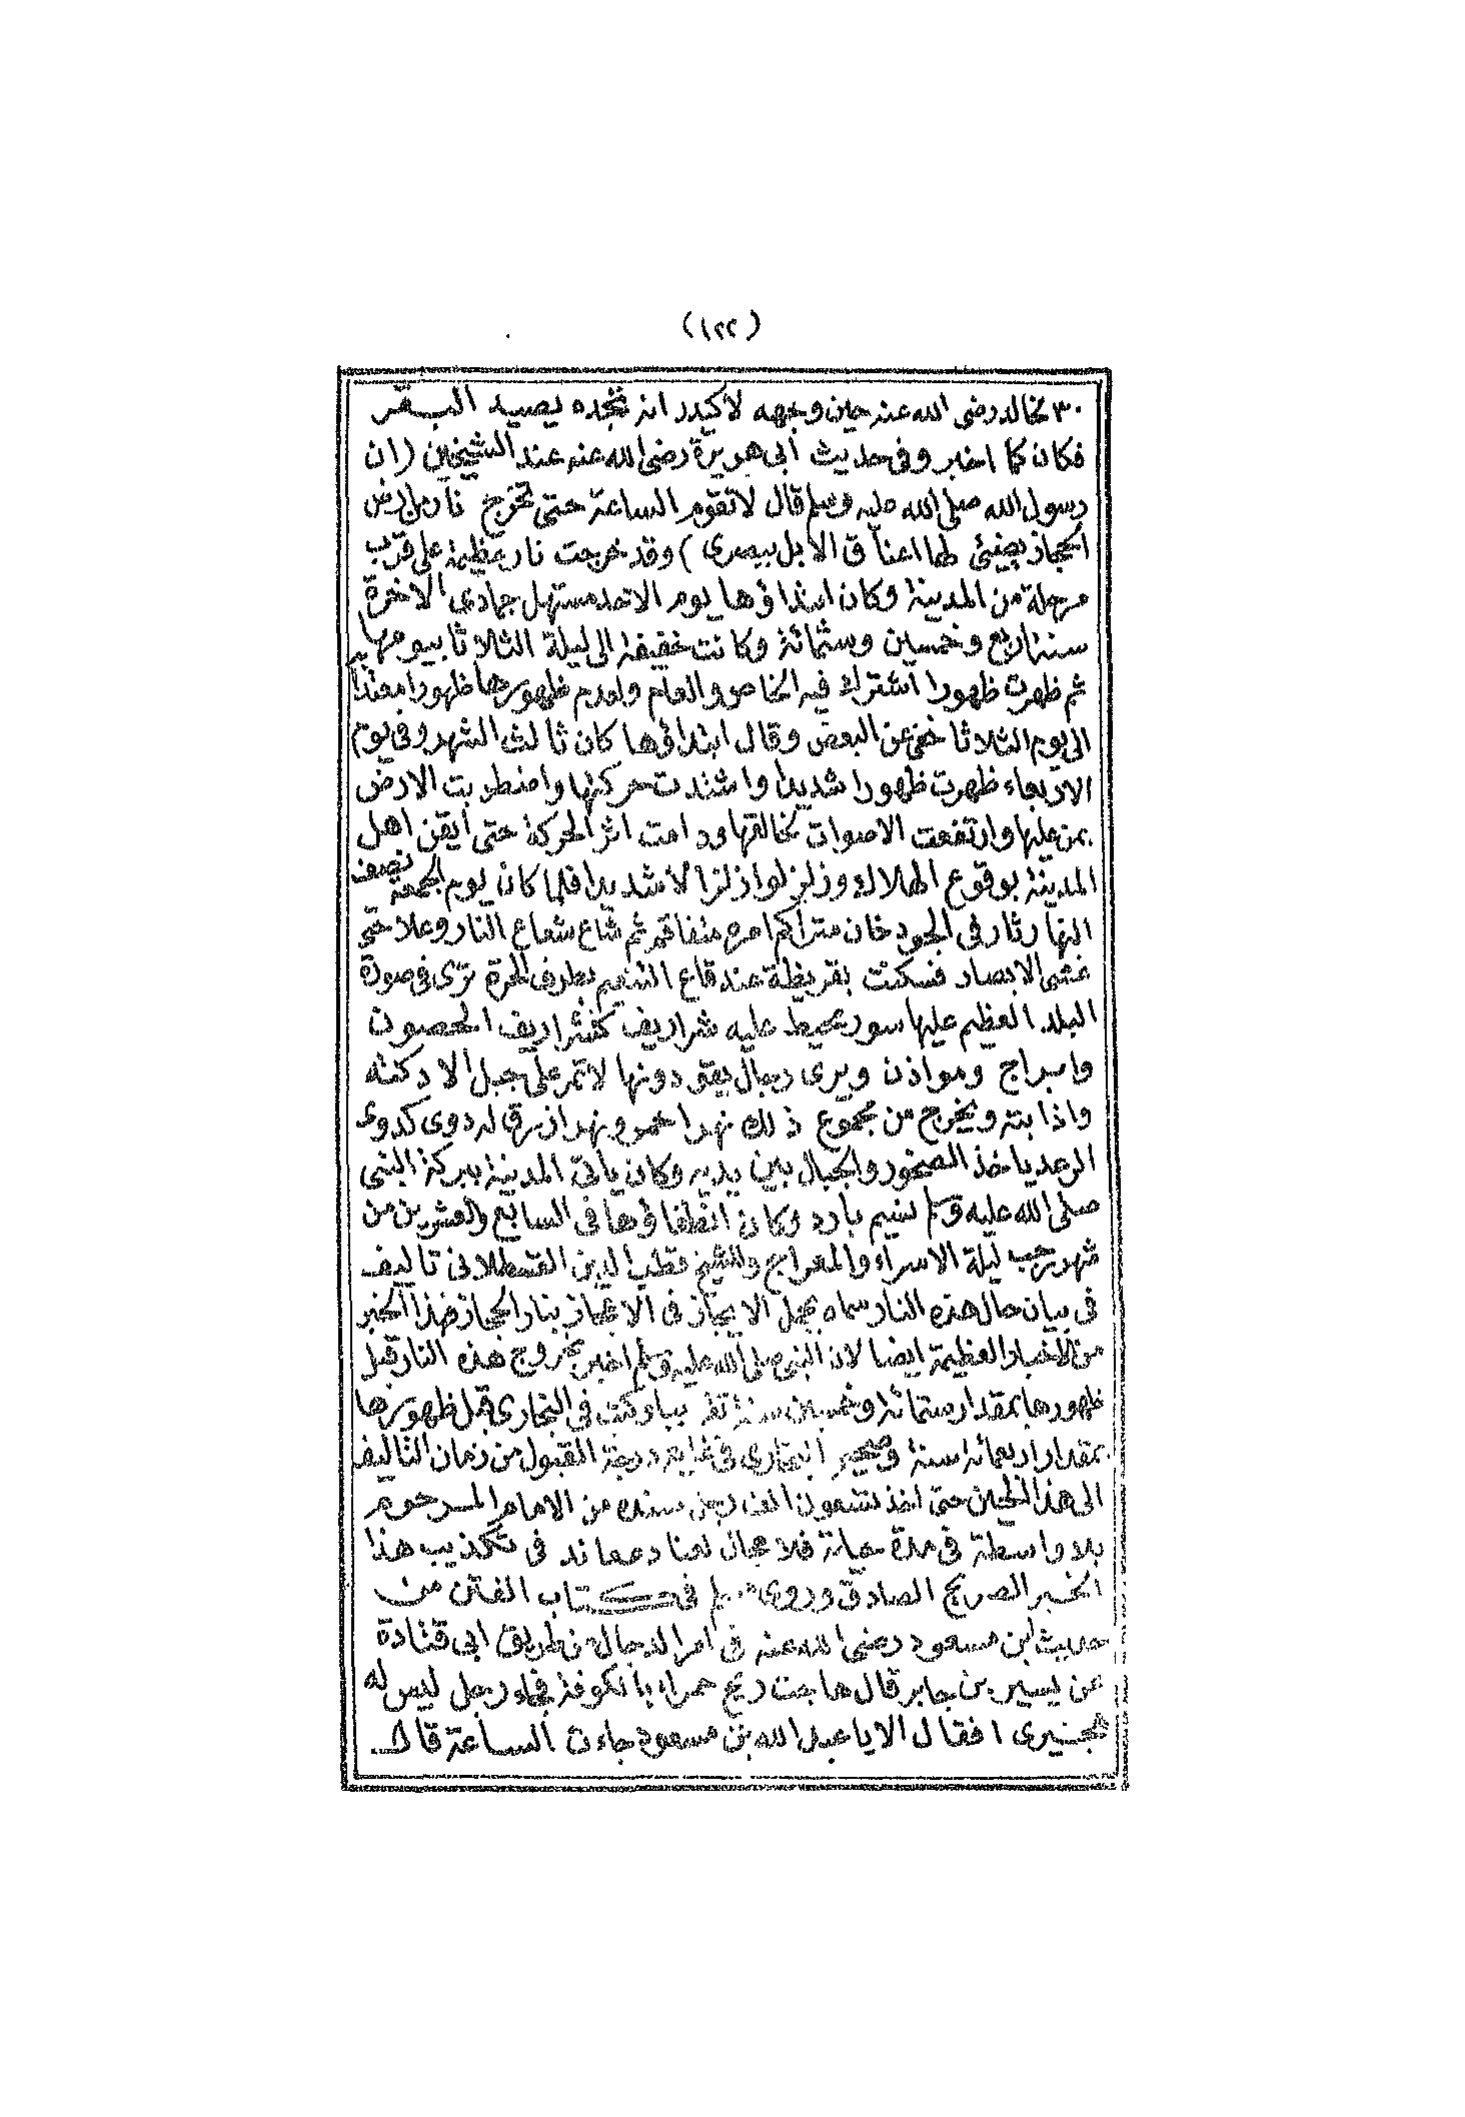 (١٢٢)
٣٠ لخالد رضى الله عنه حين وجهه لاكيدر انه تجده يصيد البقر
فكان كما اخبر وفى حديث أبى هريرة رضى الله عنه عند الشيخين (ان
رسول الله صلى الله عليه وسلم قال لا تقوم الساعة حتى تخرج نار من ارض
الحجاز يضيئ لها اعناق الابل ببصرى) وقد خرجت نار عظيمة على قرب
مرحلة من المدينة وكان ابتداؤها يوم الاحد مستهل جمادى الاخرة
سنة اربع وخمسين وستمائة وكانت خفيفة الى ليلة الثلاثا بيومها
ثم ظهرت ظهورا اشترك فيه الخاص والعام ولعدم ظهورها ظهورا معتدا
الى يوم الثلاثا خفى عن البعض وقال ابتداؤها كان ثالث الشهر وفى يوم
الاربعاء ظهرت ظهورا شديدا واشتدت حركتها واضطربت الارض
بمن عليها وارتفعت الاصوات لخالقها ودامت اثر الحركة حتى أيقن اهل
المدينة بوقوع الهلاك وزلزلوا زلزالا شديدا فلما كان يوم الجمعة نصف
النهار ثار فى الجو دخان متراكم امره متفاقم ثم شاع شعاع النار وعلا حتى
غشى الابصار فسكنت بقريظة عند قاع التنعيم بطرف الحرة ترى فى صورة
البلد العظيم عليها سور محيط عليه شراريف كشراريف الحصون
وابراج ومواذن ويرى رجال يقودونها لا تمر على جبل الا دكته
واذابته ويخرج من مجموع ذلك نهر احمر ونهر ازرق له دوى كدوى
الرعد ياخذ الصخور والجبال بين يديه وكان ياتى المدينة ببركة النبى
صلى الله عليه وسلم نسيم بارد وكان انطفاؤها فى السابع والعشرين من
شهر رجب ليلة الاسراء والمعراج وللشيخ قطب الدين القسطلانى تاليف
فى بيان حال هذه النار سماه بجمل الايجاز فى الاعجاز بنار الحجاز فهذا الخبر
من الاخبار العظيمة ايضا لان النبى صلى الله عليه وسلم اخبر بخروج هذه النار قبل
ظهورها بمقدار ستمائة وخمسين سنة تقريبا وكتب فى البخارى قبل ظهورها
بمقدار اربعمائة سنة وصحيح البخارى فى غاية درجة القبول من زمان التاليف
الى هذا الحين حتى اخذ تسعون الف رجل سنده من الامام المرحوم
بلا واسطة فى مدة حياته فلا مجال لعناد معاند فى تكذيب هذا
الخبر الصريح الصادق وروى مسلم فى كتاب الفتن من
حديث ابن مسعود رضى الله عنه فى امر الدجال من طريق ابى قتادة
عن يسير بن جابر قال هاجت ريح حمراء بالكوفة فجاء رجل ليس له
هجيرى ١ فقال الا يا عبد الله بن مسعود جاءت الساعة قال